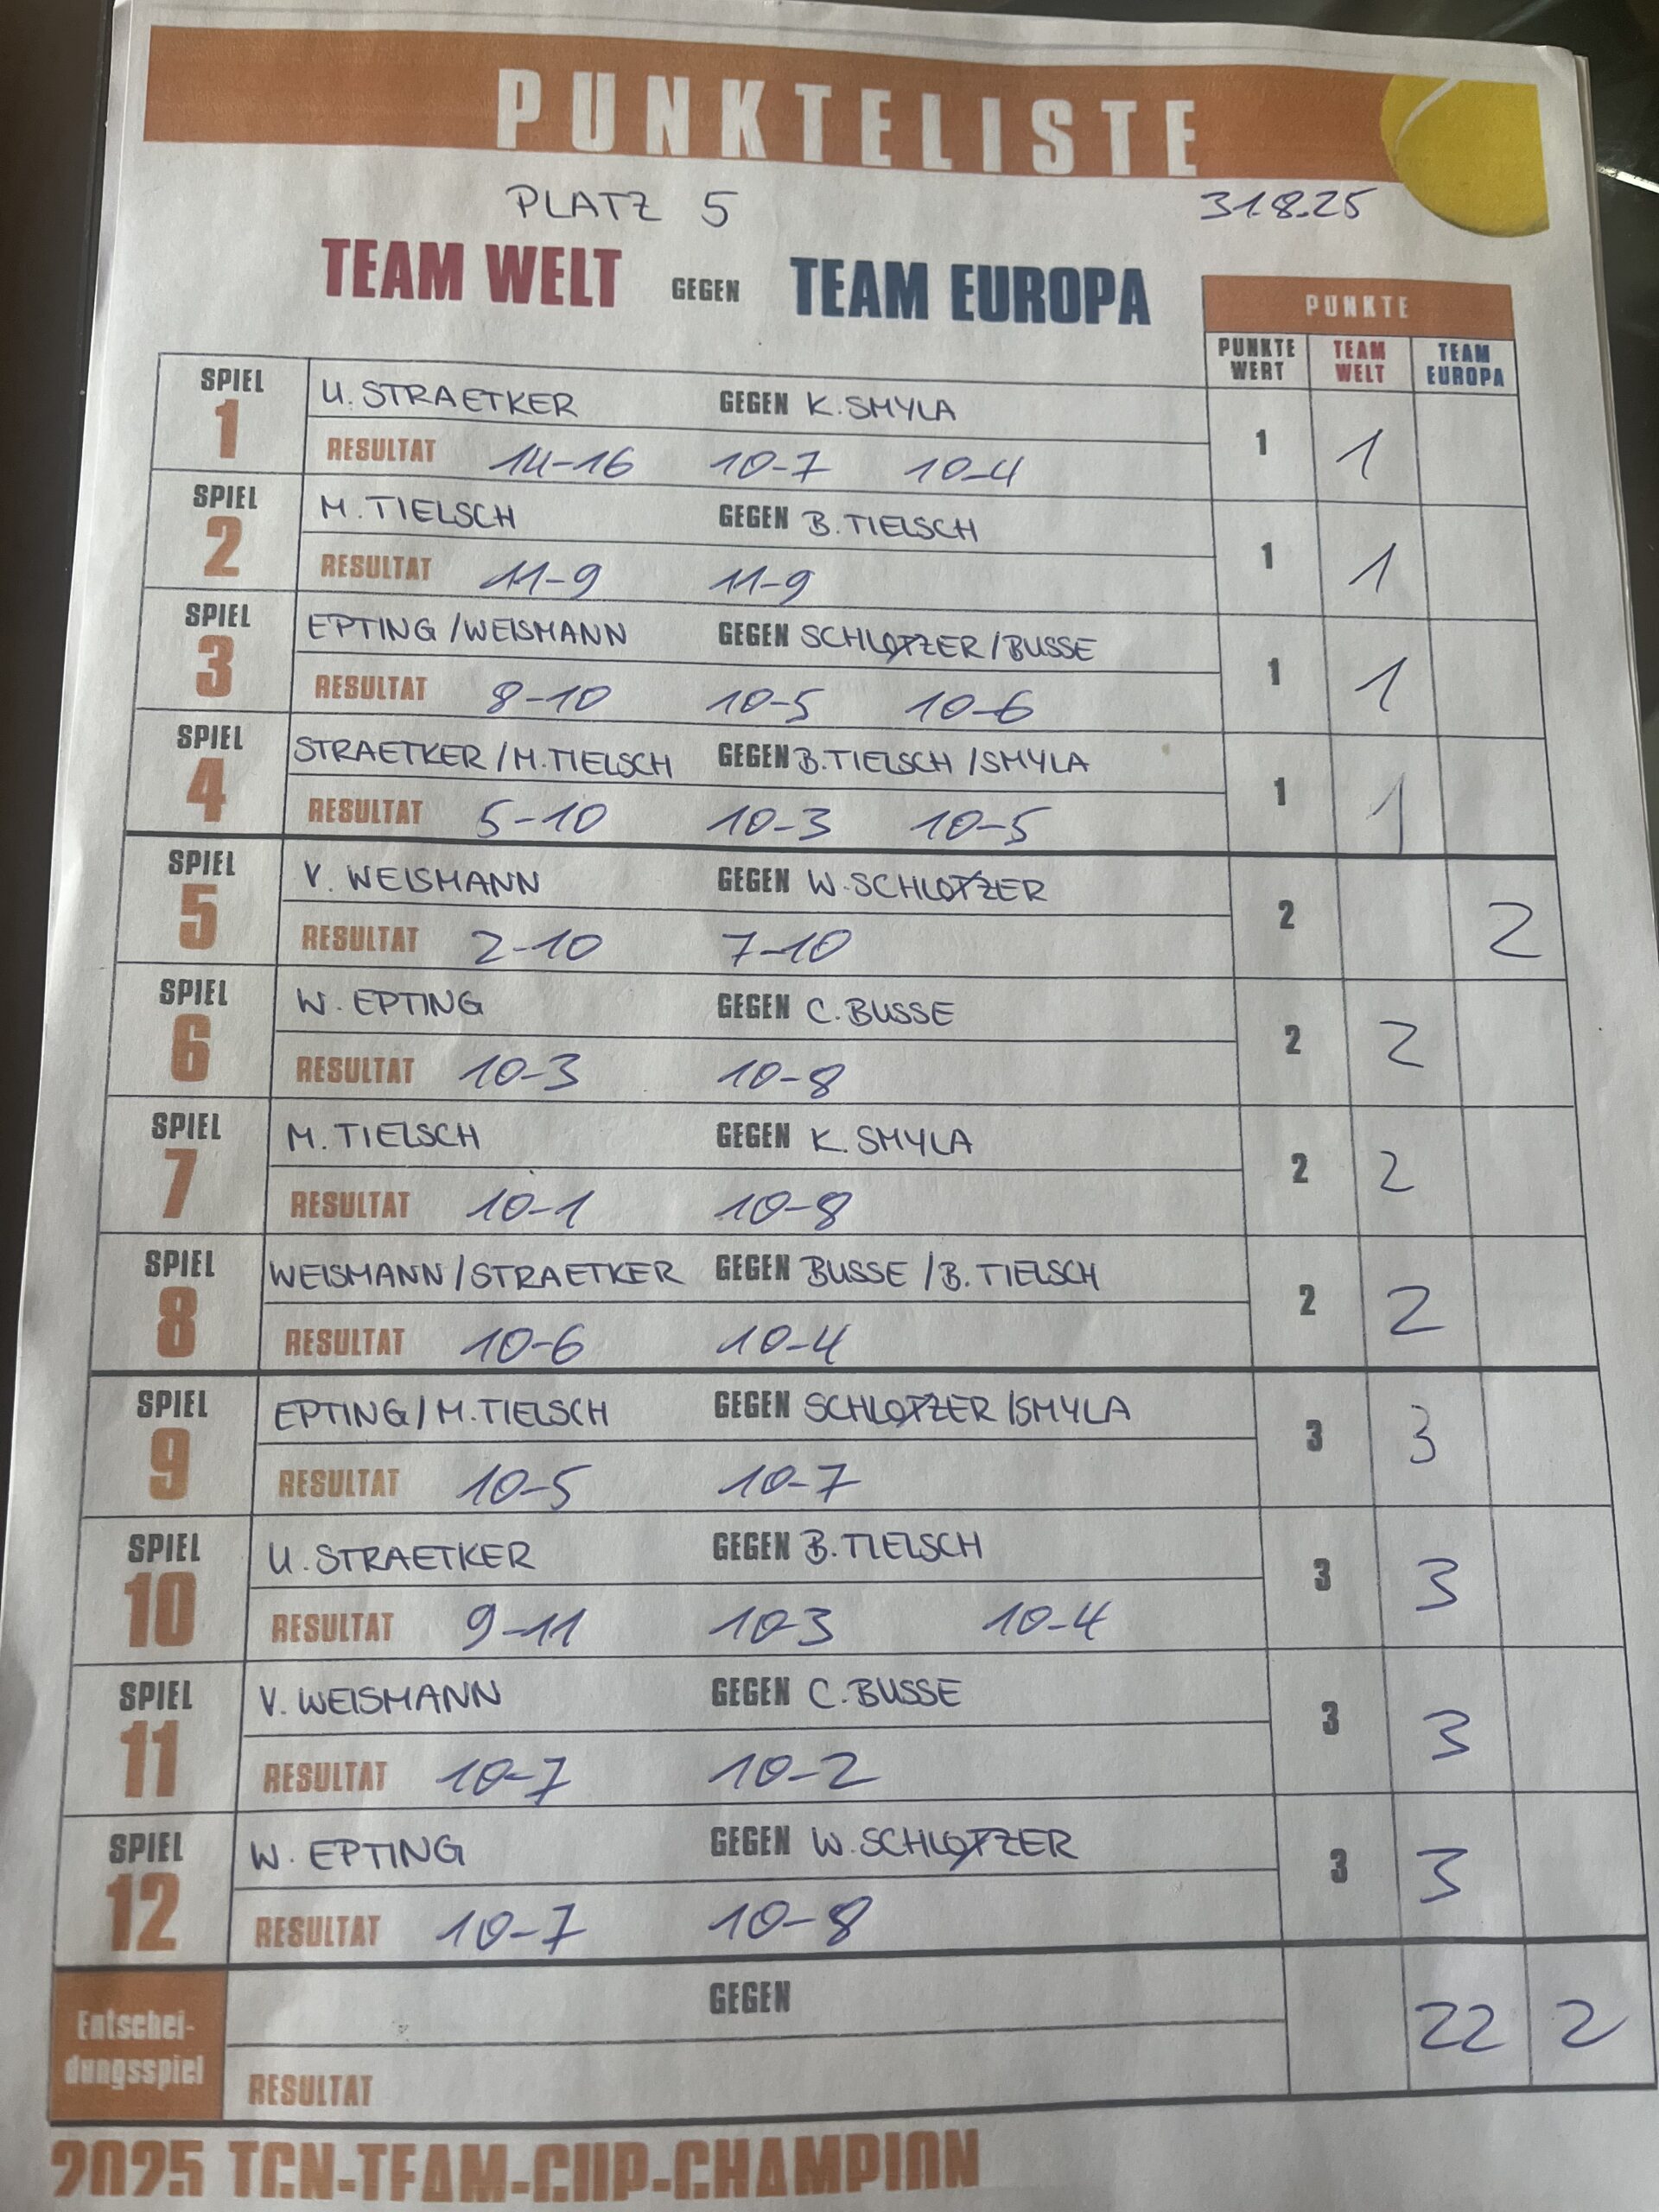 PUNKTELISTE
PLATZ 5 31.8.25
TEAM WELT GEGEN TEAM EUROPA
PUNKTE
PUNKTE WERT TEAM WELT TEAM EUROPA
SPIEL 1 U. STRAETKER GEGEN K. SMYLA
RESULTAT 14-16 10-7 10-4 1 1
SPIEL 2 M. TIELSCH GEGEN B. TIELSCH
RESULTAT 11-9 11-9 1 1
SPIEL 3 EPTING / WEISMANN GEGEN SCHLOTZER / BUSSE
RESULTAT 8-10 10-5 10-6 1 1
SPIEL 4 STRAETKER / M. TIELSCH GEGEN B. TIELSCH / SMYLA
RESULTAT 5-10 10-3 10-5 1 1
SPIEL 5 V. WEISMANN GEGEN W. SCHLOTZER
RESULTAT 2-10 7-10 2 2
SPIEL 6 W. EPTING GEGEN C. BUSSE
RESULTAT 10-3 10-8 2 2
SPIEL 7 M. TIELSCH GEGEN K. SMYLA
RESULTAT 10-1 10-8 2 2
SPIEL 8 WEISMANN / STRAETKER GEGEN BUSSE / B. TIELSCH
RESULTAT 10-6 10-4 2 2
SPIEL 9 EPTING / M. TIELSCH GEGEN SCHLOTZER / SMYLA
RESULTAT 10-5 10-7 3 3
SPIEL 10 U. STRAETKER GEGEN B. TIELSCH
RESULTAT 9-11 10-3 10-4 3 3
SPIEL 11 V. WEISMANN GEGEN C. BUSSE
RESULTAT 10-7 10-2 3 3
SPIEL 12 W. EPTING GEGEN W. SCHLOTZER
RESULTAT 10-7 10-8 3 3
Entschei-
dungsspiel GEGEN 22 2
RESULTAT
2025 TCN-TEAM-CUP-CHAMPION